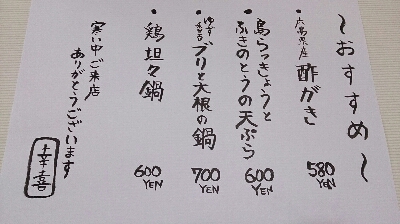 ～おすすめ～
・広島県産 酢がき 580YEN
・島らっきょうと
ふきのとうの天ぷら 600YEN
・ゆず香る ブリと大根の鍋 700YEN
・鶏坦々鍋 600YEN
寒い中ご来店
ありがとうございます
幸喜